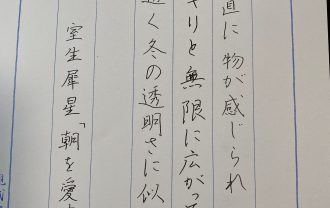 直に物が感じられ
キリと無限に広がって
近く冬の透明さに似
室生犀星「朝を愛